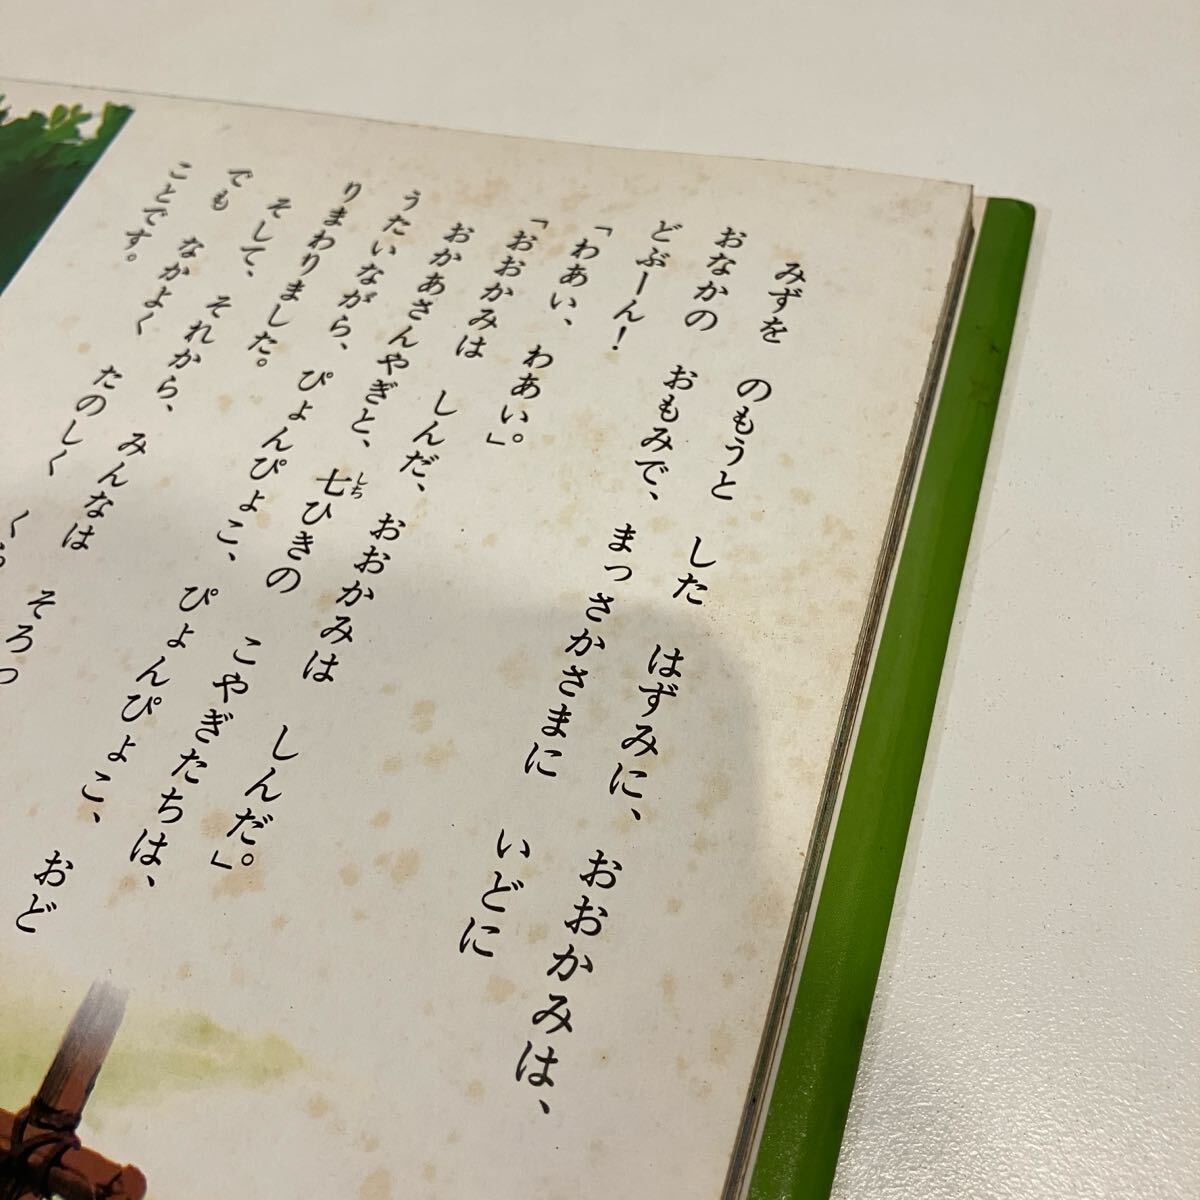 みずを のもうと した はずみに、 おおかみは、
おなかの おもみで、 まっさかさまに いどに
どぶーん！
「わあい、 わあい。」
「おおかみは しんだ、 おおかみは しんだ。」
おかあさんやぎと、 七(しち)ひきの こやぎたちは、
うたいながら、 ぴょんぴょこ、 ぴょんぴょこ、 おど
りまわりました。
そして、 それから、 みんなは そろっ
でも なかよく たのしく
ことです。